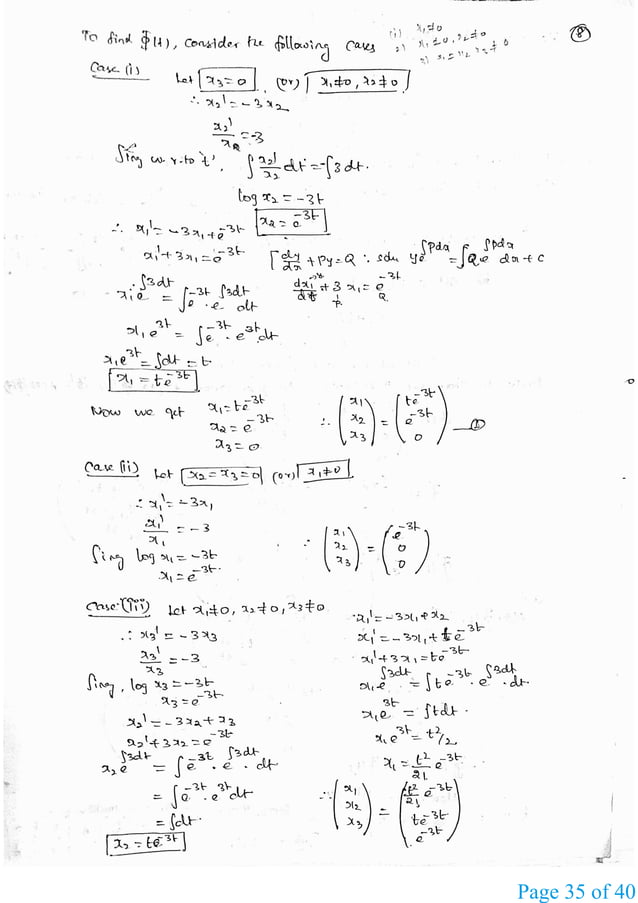 To find Φ(t), consider the following cases
(i) x₁≠0
2) x₁≠0, x₂≠0
⑧
Case (i)
Let x₃=0, (or) x₁≠0, x₂≠0
∴ x₂' = -3x₂
x₂'/x₂ = -3
∫ing w.r.to 't', ∫ x₂'/x₂ dt = -∫3dt.
log x₂ = -3t
x₂ = e^{-3t}
∴ x₁' = -3x₁ + e^{-3t}
x₁' + 3x₁ = e^{-3t}
[dy/dx + Py = Q ∴ soln ye^{∫Pdx} = ∫Qe^{∫Pdx} dx + c
dx₁/dt + 3 x₁ = e^{-3t}
P Q
x₁e^{∫3dt} = ∫e^{-3t} · e^{∫3dt} dt
x₁e^{3t} = ∫e^{-3t} · e^{3t} dt
x₁e^{3t} = ∫dt = t
x₁ = te^{-3t}
Now we get x₁ = te^{-3t}
x₂ = e^{-3t}
x₃ = 0
∴ (x₁ x₂ x₃) = (te^{-3t} e^{-3t} 0) — ①
Case (ii) Let x₂ = x₃ = 0 (or) x₁≠0
∴ x₁' = -3x₁
x₁'/x₁ = -3
∫ing log x₁ = -3t
x₁ = e^{-3t}
∴ (x₁ x₂ x₃) = (e^{-3t} 0 0)
Case (iii) Let x₁≠0, x₂≠0, x₃≠0
∴ x₃' = -3x₃
x₃'/x₃ = -3
∫ing, log x₃ = -3t
x₃ = e^{-3t}
x₂' = -3x₂ + x₃
x₂' + 3x₂ = e^{-3t}
x₂e^{∫3dt} = ∫e^{-3t} · e^{∫3dt} · dt
= ∫e^{-3t} · e^{3t} dt
= ∫dt.
x₂ = te^{-3t}
x₁' = -3x₁ + x₂
x₁' = -3x₁ + te^{-3t}
x₁' + 3x₁ = te^{-3t}
x₁e^{∫3dt} = ∫te^{-3t} · e^{∫3dt} · dt
x₁e^{3t} = ∫tdt.
x₁e^{3t} = t²/2
x₁ = t²/2! e^{-3t}
∴ (x₁ x₂ x₃) = (t²/2! e^{-3t} te^{-3t} e^{-3t})
Page 35 of 40